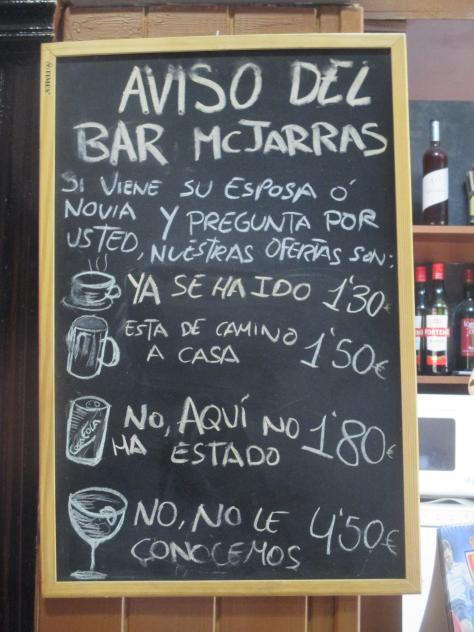 TIMEX
AVISO DEL
BAR McJARRAS
SI VIENE SU ESPOSA Ó
NOVIA Y PREGUNTA POR
USTED, NUESTRAS OFERTAS SON:
YA SE HA IDO 1'30
ESTA DE CAMINO
A CASA 1'50€
COCA COLA
NO, AQUÍ NO
HA ESTADO 1'80€
NO, NO LE
CONOCEMOS 4'50€